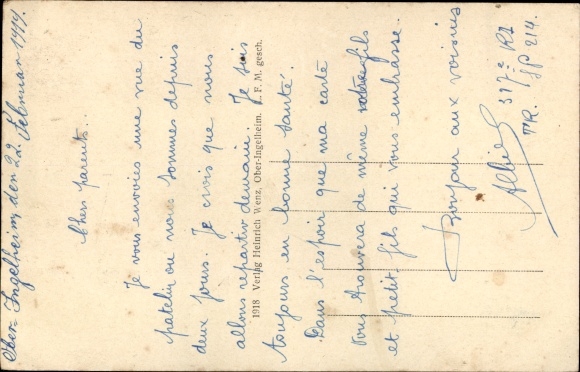 Ober-Ingelheim, den 22. Februar 1919.
Chers parents..
Je vous envoies une vue du
patelin ou nous sommes depuis
deux jours. Je crois que nous
allons repartir demain. Je suis
toujours en bonne santé.
Dans l'espoir que ma carte
vous trouvera de même votre fils
et petit fils qui vous embrasse.
Bonjour aux voisins
317e RI
SP 214.
1918 Verlag Heinrich Wenz, Ober-Ingelheim. L. F. M. gesch.